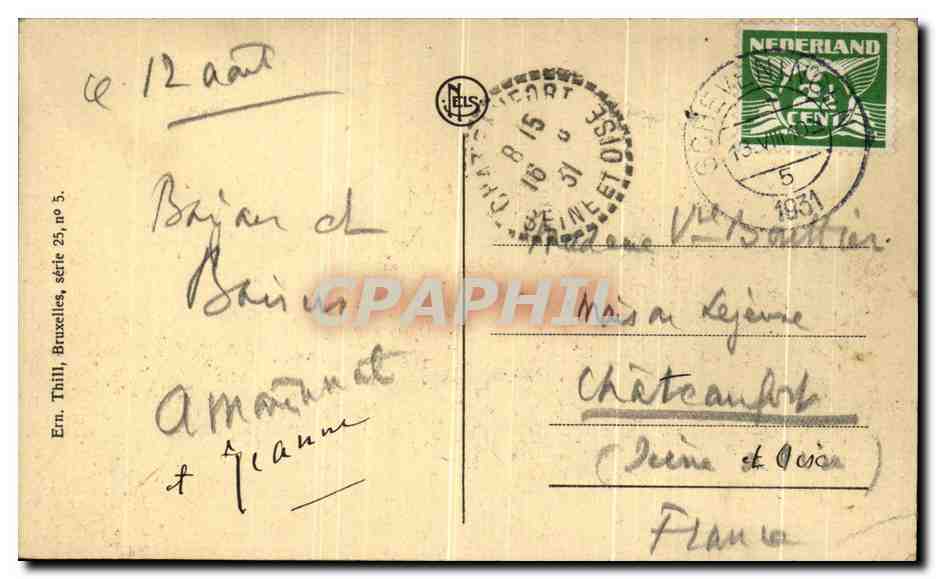 ce 12 août
NELS
CHATEAUFORT
8 15
16 8 31
SEINE ET OISE
NEDERLAND
2½
CENT
13.VIII
5
1931
Ern. Thill, Bruxelles, série 25, nº 5.
Bonjour et
Baisers
CPAPHIL
et Jeanne
Madame Vve Bouttier
Maison Lejeune
Châteaufort
(Seine et Oise)
France